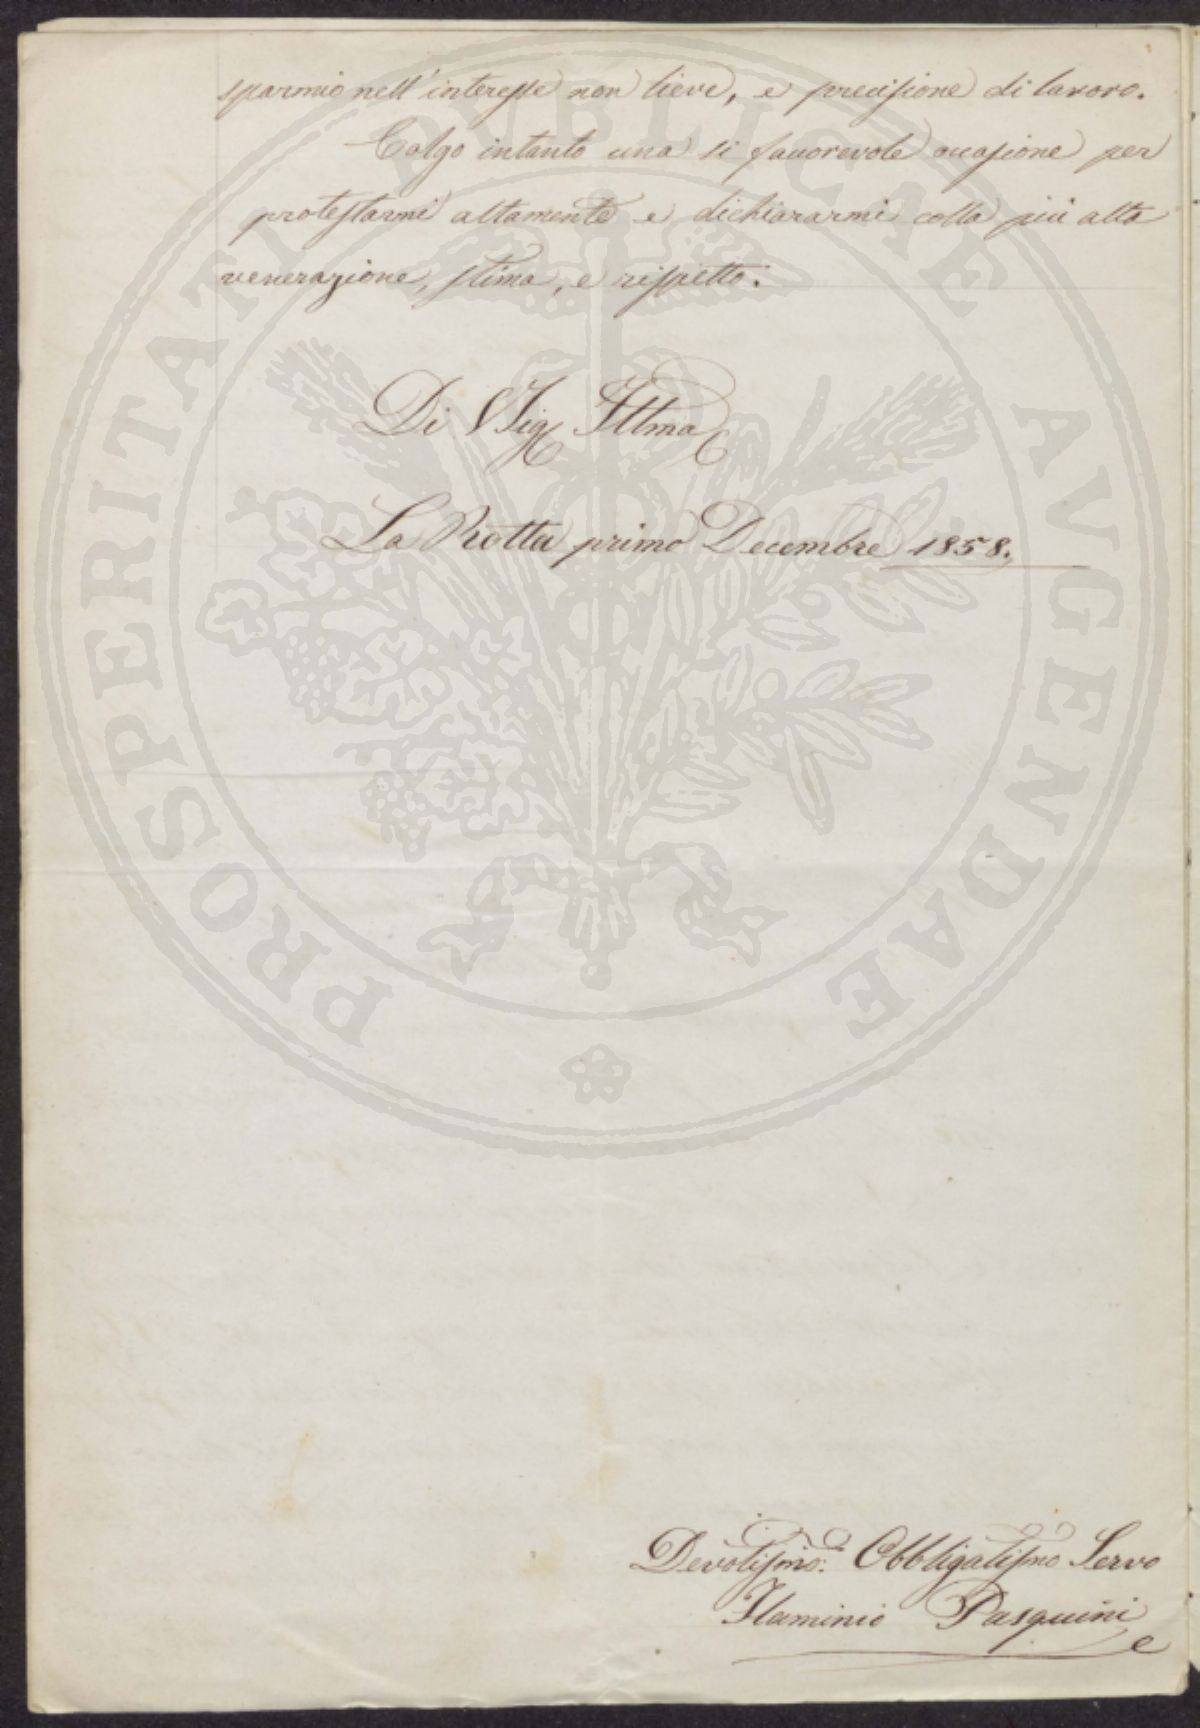 sparmio nell'interesse non lieve, e precisione di lavoro.
Colgo intanto una si favorevole occasione per
protestarmi altamente e dichiararmi colla più alta
venerazione, stima, e rispetto.
Di VSig Illma
La Rotta primo Decembre 1858.
Devotissmo: Obbligatissmo Servo
Flaminio Pasquini
PROSPERITATI PUBLICAE AUGENDAE